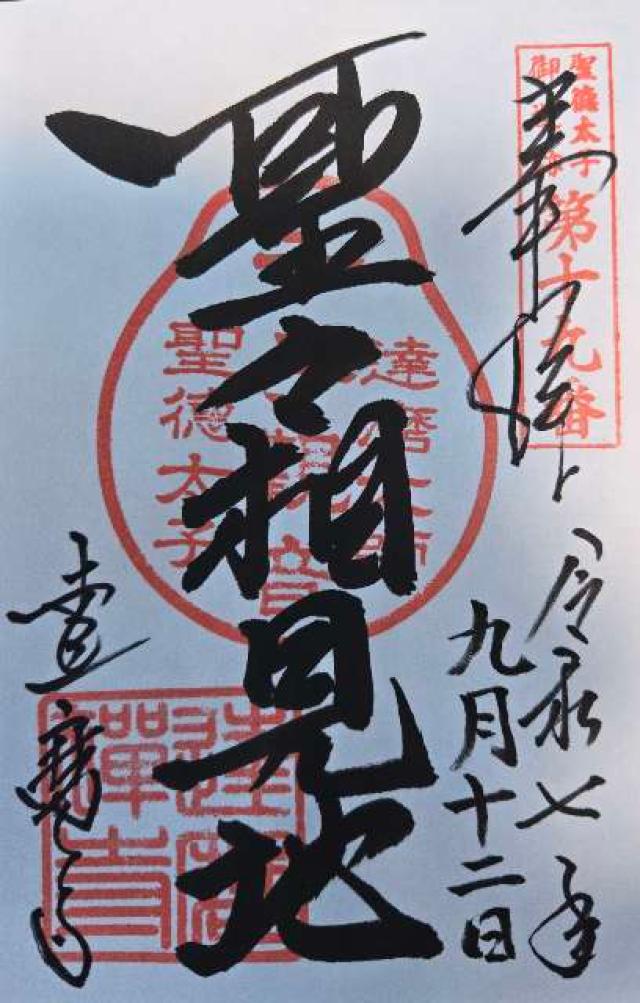 聖徳太子
第十九番
奉拝
令和七年
九月十二日
聖々相見地
達磨大師
観音
聖徳太子
達磨寺
達磨
禪寺